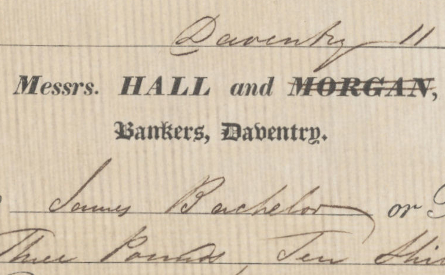 Daventry 11
Messrs. HALL and MORGAN,
Bankers, Daventry.
James Bachelor or
Three Pounds, Ten Shil